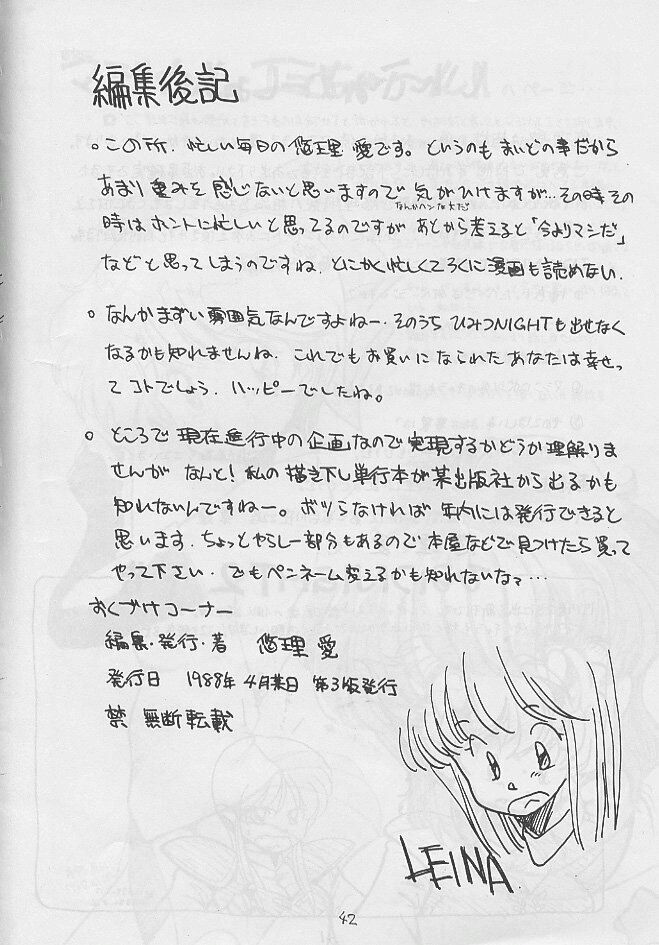 編集後記
○この所、忙しい毎日の悠理愛です。というのもまいどの事だから
あまり重みを感じないと思いますので気がひけますが…その時その
なんかヘンな文だ
時はホントに忙しいと思ってるのですがあとから考えると「今よりマシだ」
などと思ってしまうのですね、とにかく忙しくてろくに漫画も読めない、
○なんかまずい雰囲気なんですよねー、そのうちひみつNIGHTも出せなく
なるかも知れませんね、これでもお買いになられたあなたは幸せっ
てコトでしょう、ハッピーでしたね。
○ところで現在進行中の企画なので実現するかどうか理解りま
せんがなんと！私の描き下し単行本が某出版社から出るかも
知れないんですねー。ボツらなければ年内には発行できると
思います、ちょっとやらしー部分もあるので本屋などで見つけたら買って
やって下さい、でもペンネーム変えるかも知れないなァ…
おくづけコーナー
編集・発行・著 悠理愛
発行日 1988年4月某日 第3版発行
禁無断転載
LEINA.
42